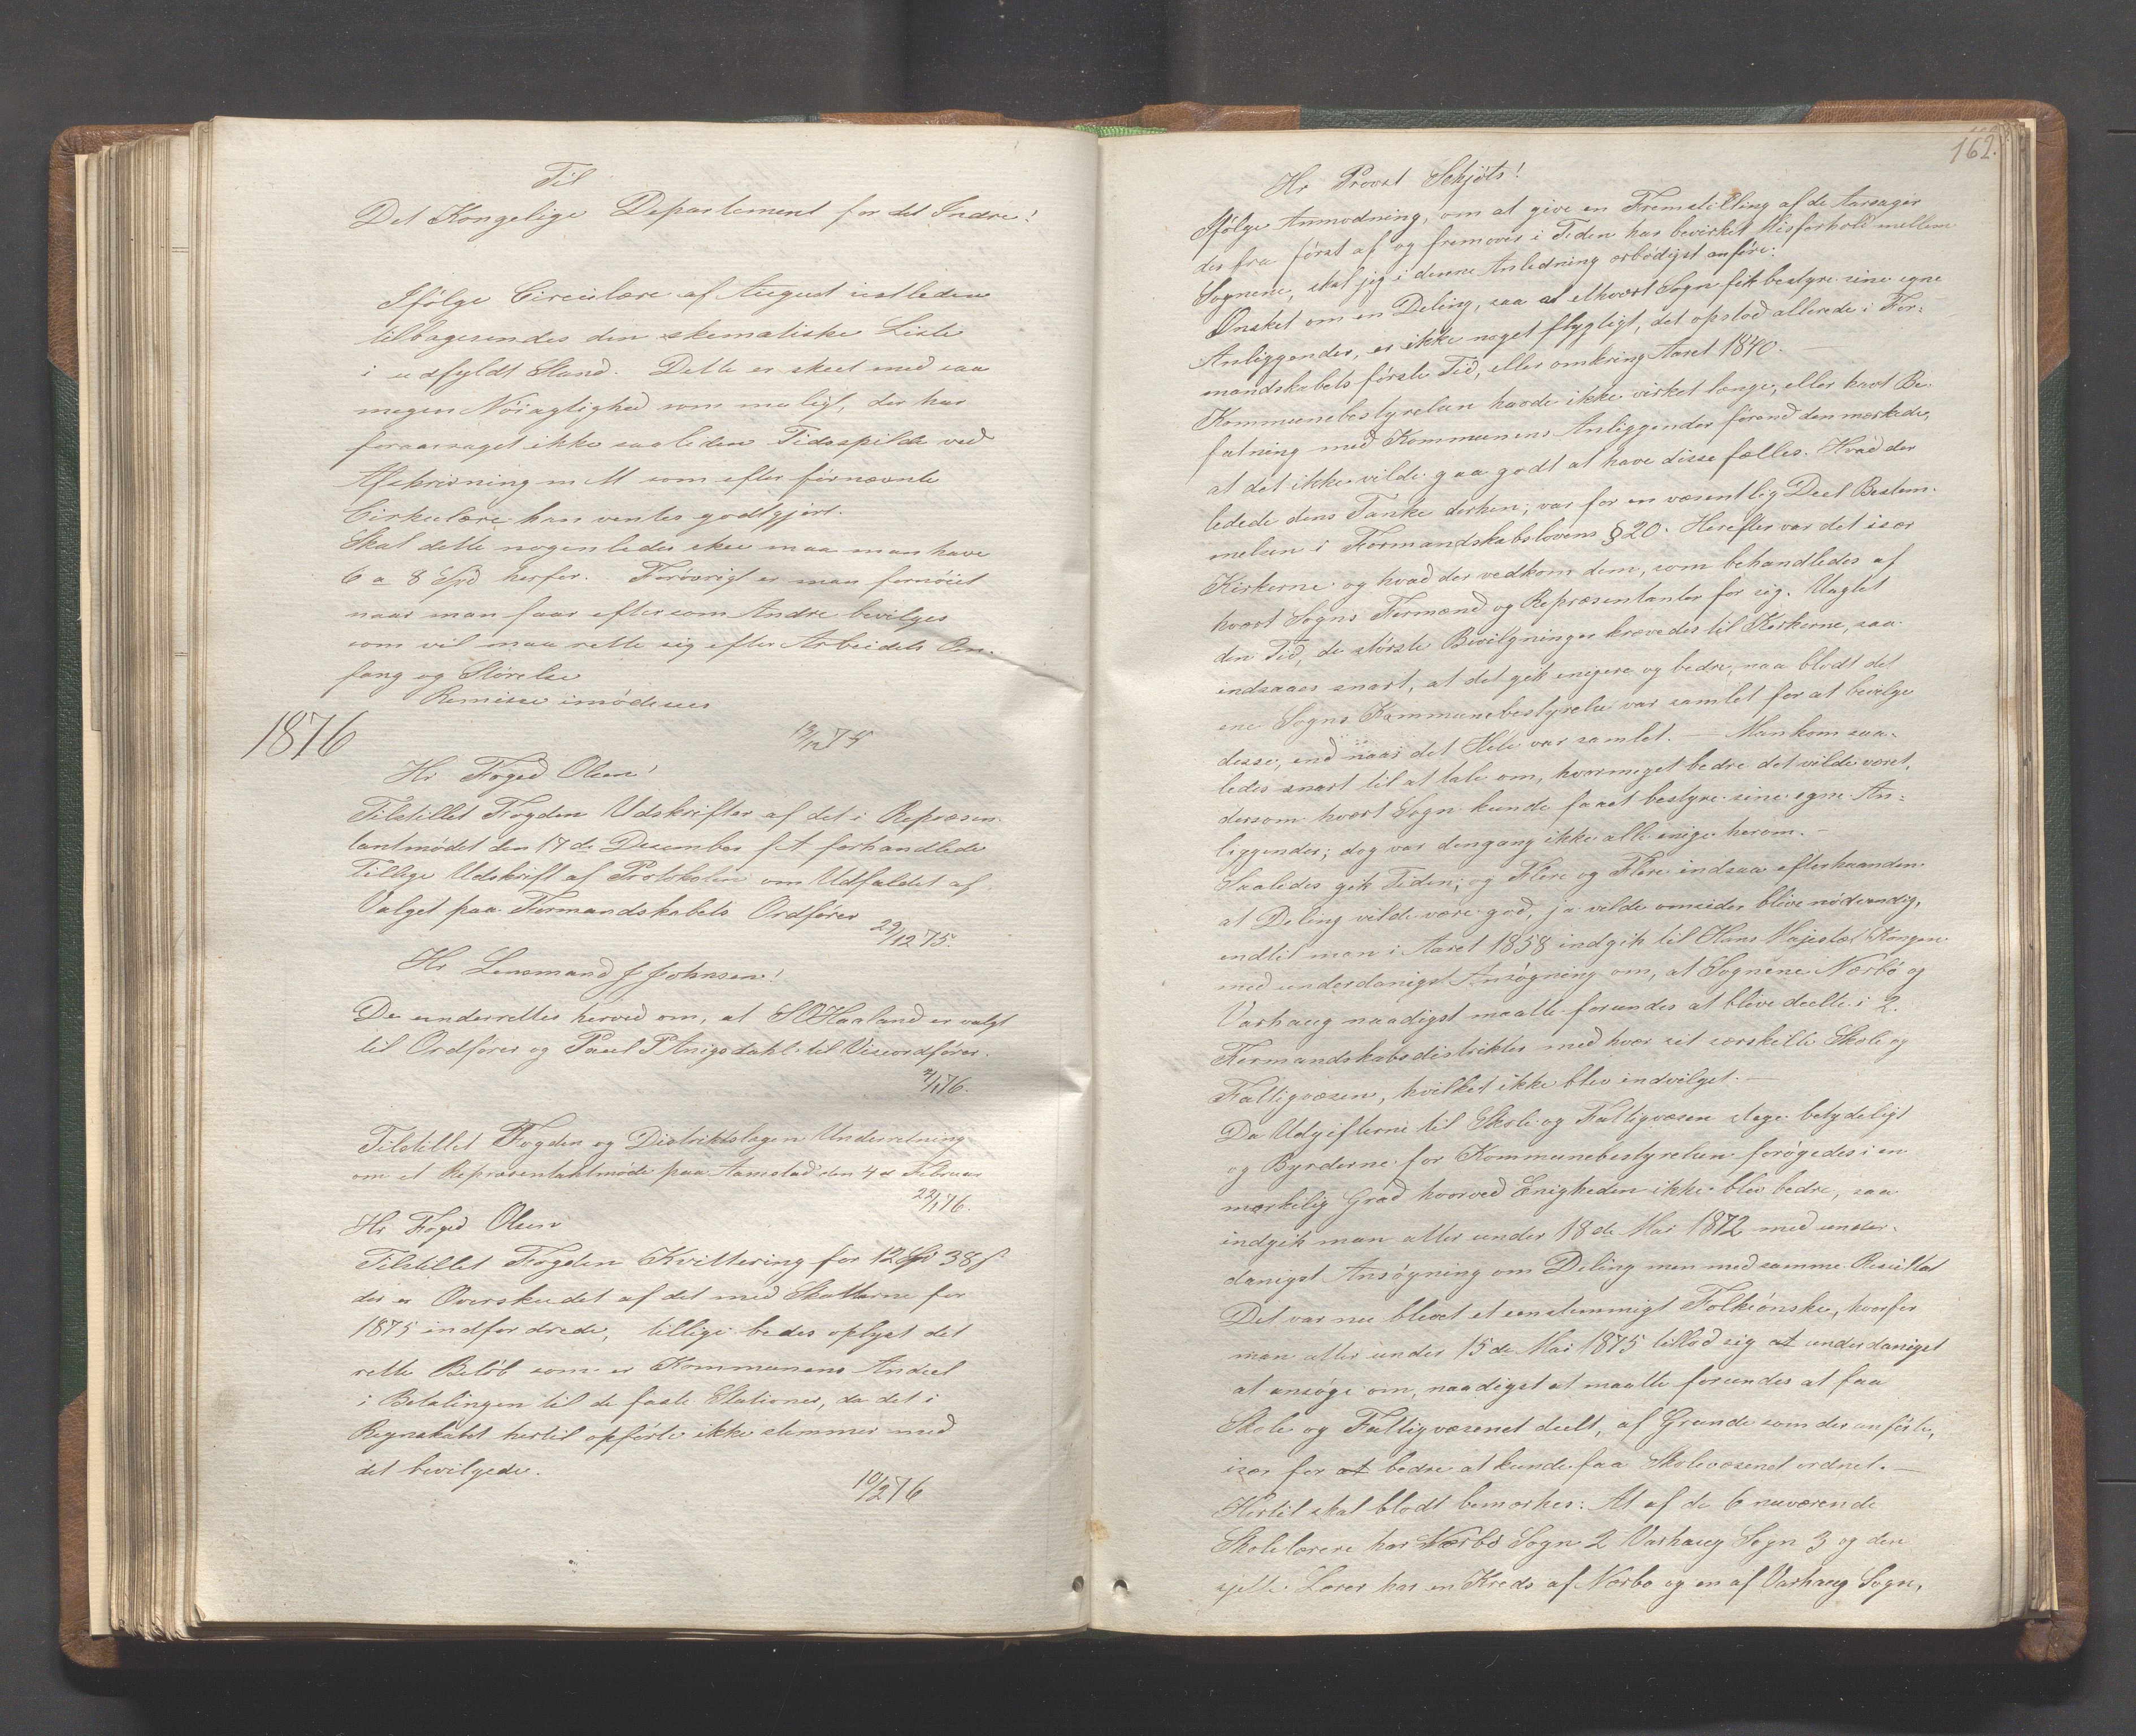 Til
Det Kongelige Departement for det Indre!
Ifölge Circulære af August istleden
tilbagesendes den skematiske Liste
i udfyldt Stand. Dette er skeet med saa
megen Nöiagtighed som muligt, der har
foraarsaget ikke saaliden Tidsspilde ved
Afskrivning m M som efter förnævnte
Cirkulære kan ventes godtgjort.
Skal dette nogenledes skee maa man have
6 a 8 Spd herfor. Forövrigt er man fornöiet
naar man faar eftersom Andre bevilges
som vil maa rette sig efter Arbeidets Om-
fang og Störelse
Remisse imödesees
13/12 75
1876
Hr Foged Olsen!
Tilstillet Fogden Udskrifter af det i Repræsen-
tantmödet den 17de Desember f A forhandlede
Tillige Udskrift af Protokolen om Udfaldet af
Valget paa Formandskabets Ordförer
29/12 75.
Hr Lensmand J Johnsen!
De underrettes herved om, at S O Haaland er valgt
til Ordförer og Paul P Anigsdahl til Viseordförer.
4/1 76.
Tilstillet Fogden og Distriktslagen Underretning
om et Repræsentantmöde paa Aamstad den 4de Februar
22/1 76.
Hr Foged Olsen
Tilstillet Fogden Kvittering for 12 Spd 38 s
der er Overskudet af det med Skatterne for
1875 indfordrede, tillige bedes oplyst det
rette Belöb som er Kommunens Andeel
i Betalingen til de faste Stationer, da det i
Regnskabet hertil opförte ikke stemmer med
det bevilgede.
10/2 76
162.
Hr Provst Schjöts!
Ifölge Anmodning, om at give en Fremstilling af de Aarsager
der fra först af og fremover i Tiden har bevirket Misforhold mellem
Sognene, skal jeg i denne Anledning ærbödigst anföre:
Önsket om en Deling, saa at ethvert Sogn fik bestyre sine egne
Anliggender, er ikke noget flygtigt, det opstod allerede i For-
mandskabets förste Tid, eller omkring Aaret 1840. —
Kommunebestyrelsen havde ikke virket længe, eller havt Be-
fatning med Kommunens Anliggender förend den mærkede,
at det ikke vilde gaa godt at have disse fælles. Hvad der
ledede dens Tanke derhen, var for en væsentlig Deel Bestem-
melsen i Formandskabslovens § 20. Herefter var det især
Kirkerne og hvad der vedkom dem, som behandledes af
hvert Sogns Formænd og Repræsentanter for sig. Uagtet
den Tid, de störste Bevilgninger krævedes til Kirkerne, saa
indsaaes snart, at det gik enigere og bedre, naar blodt det
ene Sogns Kommunebestyrelse var samlet for at bevilge
disse, end naar det Hele var samlet. — Man kom saa-
ledes snart til at tale om, hvormeget bedre det vilde været,
dersom hvert Sogn kunde faaet bestyre sine egne An-
liggender; dog var dengang ikke alle enige herom. —
Saaledes gik Tiden; og Flere og Flere indsaa efterhaanden
at Deling vilde være god, ja vilde omsider blive nödvendig,
endtil man i Aaret 1858 indgik til Hans Majestæt Kongen
med underdanigst Ansögning om, at Sognene Nærbö og
Varhaug naadigst maatte forundes at blive deelte i 2.
Formandskabsdistrikter med hver sit særskilte Skole og
Fattigvæsen, hvilket ikke blev indvilget. —
Da Udgifterne til Skole og Fattigvæsen stege betydeligt
og Byrderne for Kommunebestyrelsen forögedes i en
mærkelig Grad hvorved Enigheden ikke blev bedre, saa
indgik man atter under 18de Mai 1872 med under-
danigst Ansögning om Deling men med samme Resultat
Det var nu blevet et eenstemmigt Folkeönske, hvorfor
man atter under 15de Mai 1875 tillod sig at underdanigst
at ansöge om, naadigst at maatte forundes at faa
Skole og Fattigvæsenet deelt, af Grunde som der anförte,
især for at bedre at kunde faa Skolevæsenet ordnet. —
Hertil skal blodt bemærkes: At af de 6 nuværende
Skolelærere har Nærbö Sogn 2 Varhaug Sogn 3 og den
sjette Lærer har en Kreds af Nærbö og en af Varhaug Sogn,